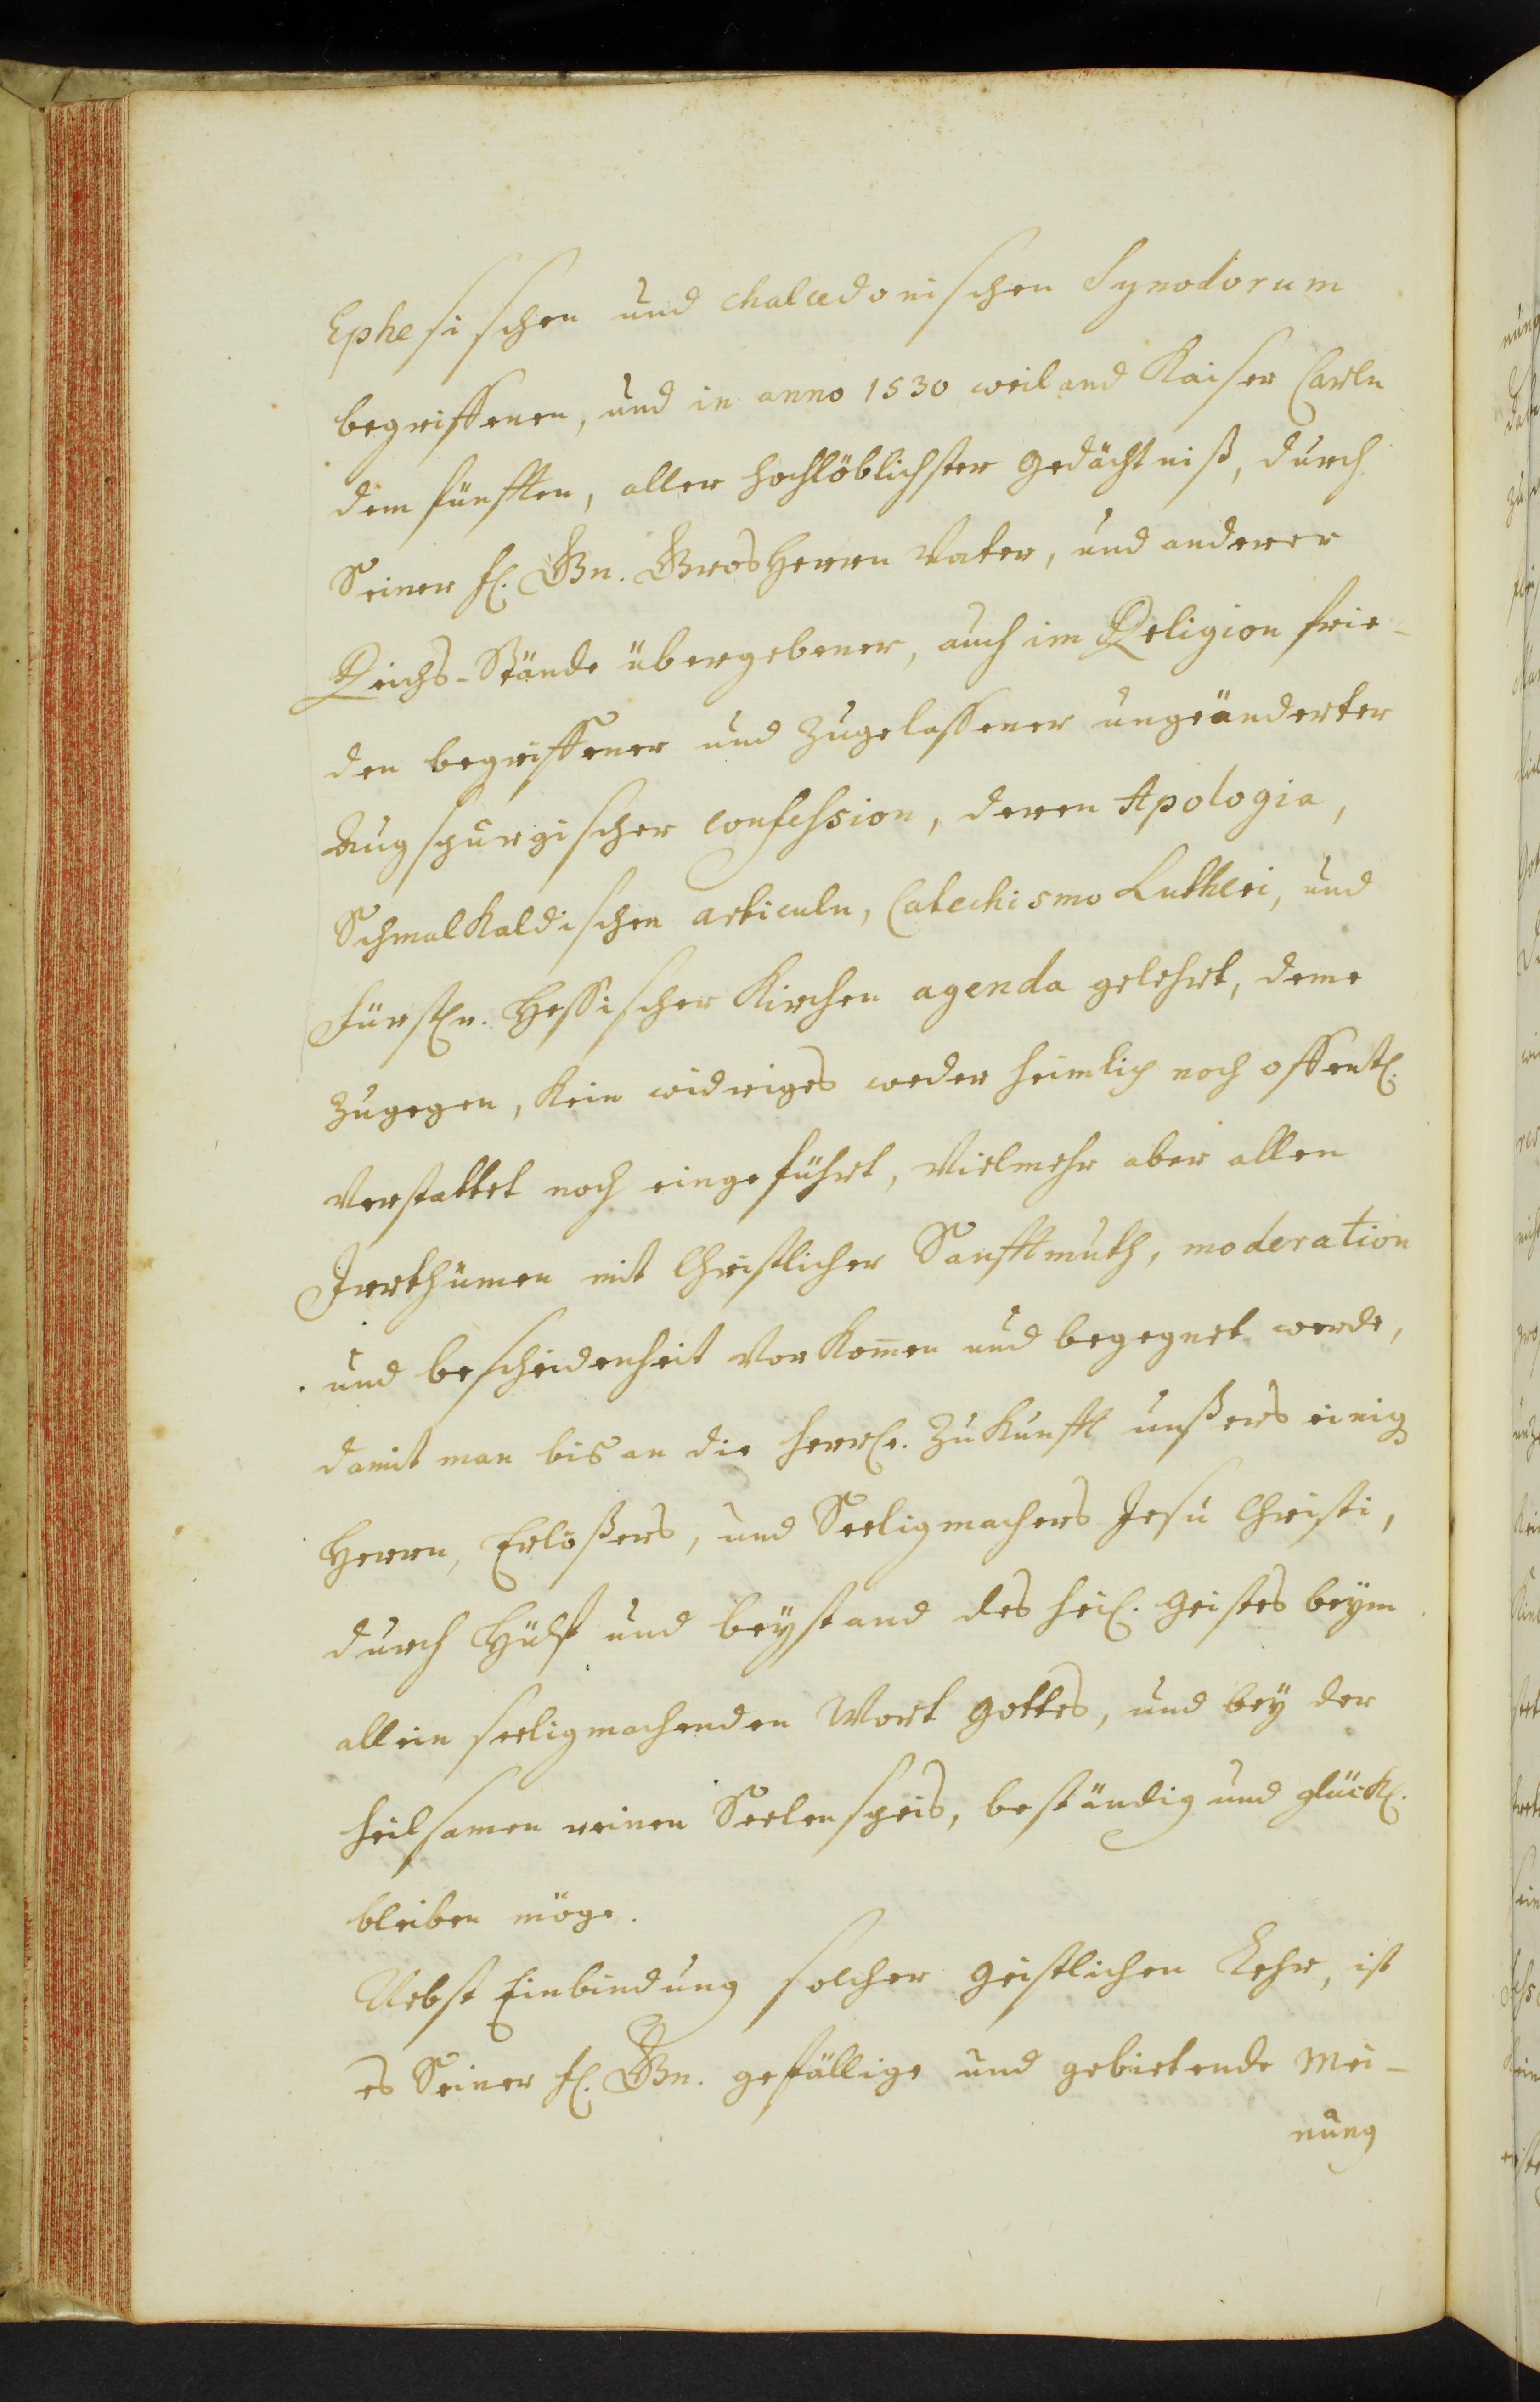 Ephesischen und chalcedonischen Synodorum
begriffenen, und in anno 1530 weiland Kaiser Carln
dem fünfften, aller hochlöblichster gedächtniß, durch
Seiner f. Gn. GrosHerrn Vater, und anderer
Reichs-Stände übergebener, auch im Religion frie-
den begriffener und zugelassener ungeänderter
Augspurgischer confession, deren Apologia,
Schmalkaldischen articuln, Catechismo Lutheri, und
Fürstln. Hessischer Kirchen agenda gelehrt, deme
zugegen, kein widriges weder heimlich noch offentl.
verstattet noch eingeführt, vielmehr aber allen
Irrthümen mit Christlicher Sanfftmuth, moderation
und bescheidenheit vorkom̅en und begegnet werde,
damit man bis an die herrl. Zukunfft unßers einig
Herrn, Erlößers, und Seeligmachers Jesu Christi,
durch Hülf und beystand des heil. geistes beym
allein seeligmachenden Wort gottes, und bey der
heilsamen reinen Seelenspeis, beständig und glückl.
bleiben möge.
Nebst Einbindung solcher geistlichen Lehr, ist
es Seiner f. Gn. gefällige und gebietende Mei-
nung